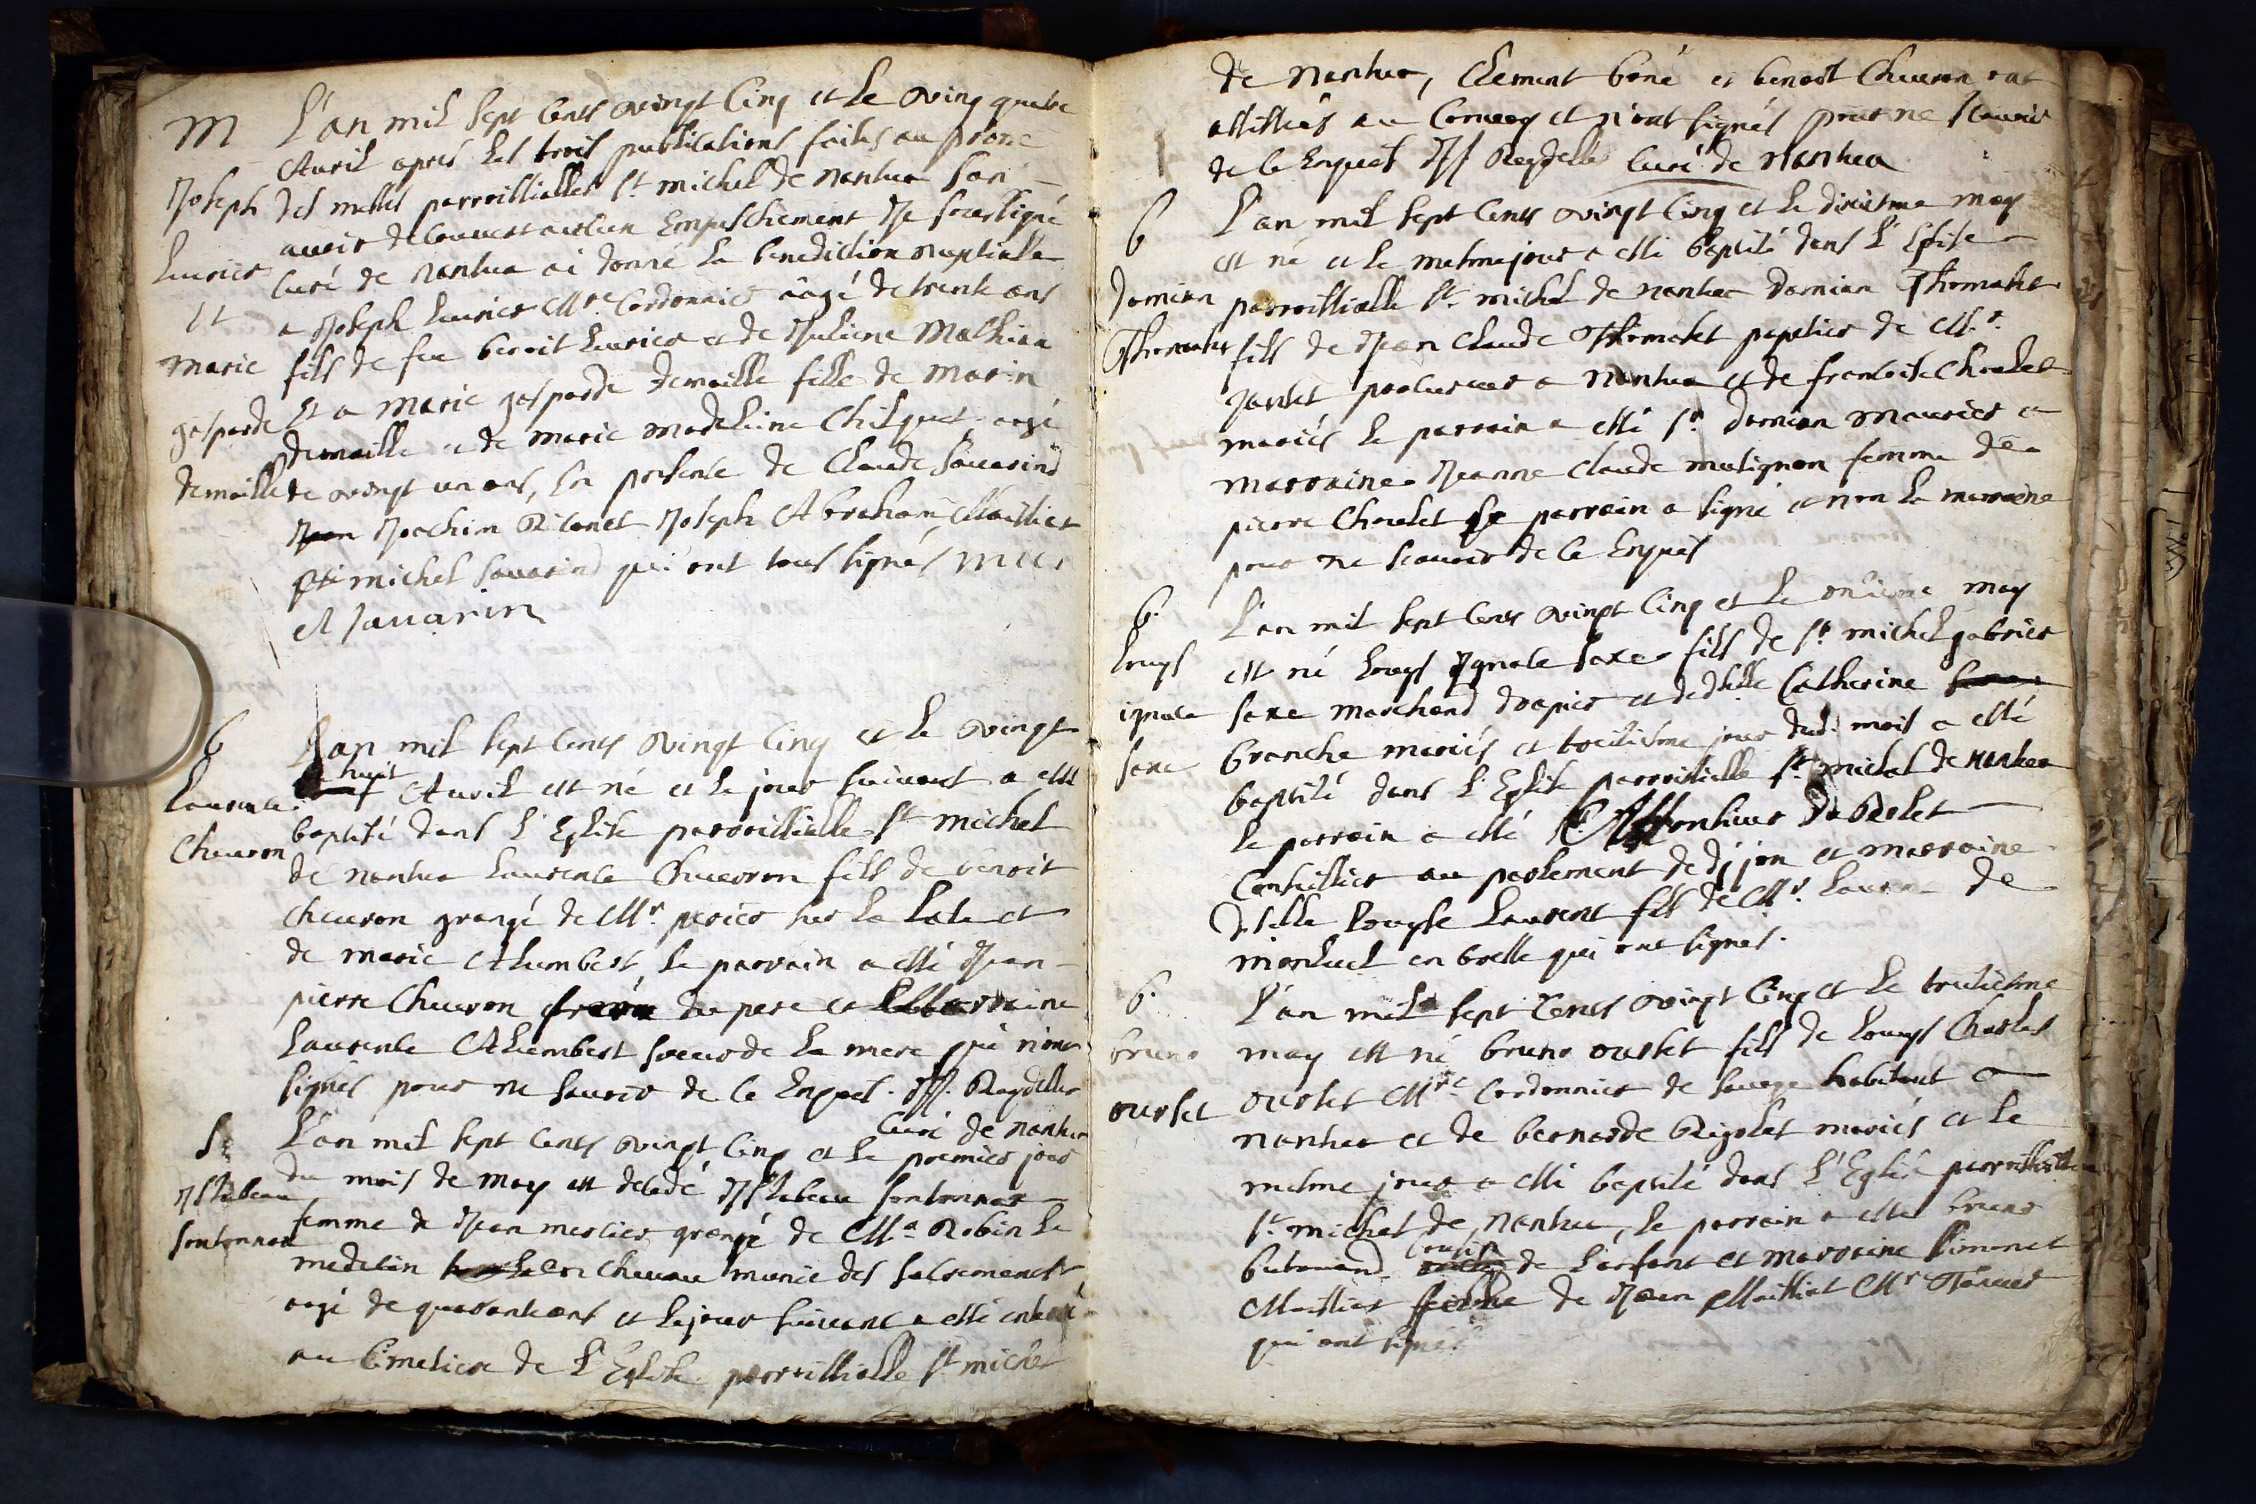 M
Joseph
Lurier
et
marie
gasparde
demaille
L'an mil sept cents vingt cinq et le ving quatre
Auril apres les trois publications faites au prone
des messes parroissialles st michel de nantua san
auoir decouuert aucun Empeschement Je soussigné
curé de nantua ai donné la benediction nuptialle
a Joseph Lurier Mre Cordonnier aagé de trente ans
fils de feu benoit Lurier et de Juliene Mathieu
Et a Marie gasparde demaille fille de Marin
demaille et de marie madeleine Chilquet aagé
de vingt un ans, En presence de Claude Sauarind
Jean Joachim Joseph Abraham Maillier
michel sauarind qui ont tous signés
et sauarin
b
Laurence
Cheuron
Lan mil sept cents vingt cinq et le vingt
huit Auril est né et le jour suiuant a esté
baptisé dans l'Eglise parroissialle st michel
de nantua Laurence Cheuron fille de benoit
cheuron grangé de Mr perier sur la et
de marie Alumbert, le parrain a esté Jean
pierre Cheuron frere du pere et Marraine
Laurence Alumbert soeur de la mere qui n'ont
signés pour ne sauoir de ce Enquis. Jf. Reydellet
Curé de nantua
S
Isabeau
sontonnax
L'an mil sept cents vingt cinq et le premier jour
du mois de may est decedé Isabeau sontonnax
femme de Jean mercier grangé de Mr Robin le
medecin Cheuau munie des sacrements
aagé de quarante ans et le jour suiuant a esté enterré
au Cimetiere de l'Eglise parroissialle st michel
de nantua, Clement boné et benoit Cheuron ont
assistés au Conuoy et n'ont signés pour ne scauoir
de ce Enquis Jf Reydellet Curé de nantua
b
domian
Thomasset
L'an mil sept cents vingt cinq et le dixiesme may
est né et le mesme jour a esté baptisé dans l'Eglise
parroissialle st michel de nantua domian Thomasset
fils de Jean Claude Thomasset papetier de Mr
Jantet procureur a Nantua et de francoise Choulet
mariés le parrain a esté sr domian Maurier et
marraine Jeanne Claude mutignon femme de
pierre Choulet le parrain a signé et non la marraine
pour ne scauoir de ce Enquis
b.
Louys
ignace
saxe
L'an mil sept cents vingt cinq et le onzieme may
est né Louys Ignace saxe fils de sr michel gabriel
saxe marchand drapier et de dlle Catherine
branche mariés et treiziesme jour dud. mois a esté
baptisé dans l'Eglise parroissialle st michel de nantua
le parrain a esté
Conseillier au parlement de dijon et marraine
dlle Louyse Laurent de Mr. Laurent de
montluel en bresse qui ont signés.
b.
bruno
ourset
L'an mil sept cents vingt cinq et le treiziesme
may est né bruno ourset fils de Louys Charles
ourset Mre Cordonnier de habitant a
nantua et de bernarde Rigolet mariés et le
mesme jour a esté baptisé dans l'Eglise parroissialle
st. michel de nantua, le parrain a esté bruno
butauand cousin de l'enfant et marraine simonet
Maillier femme de Jean Mailliat Mr Taneur
qui ont signés